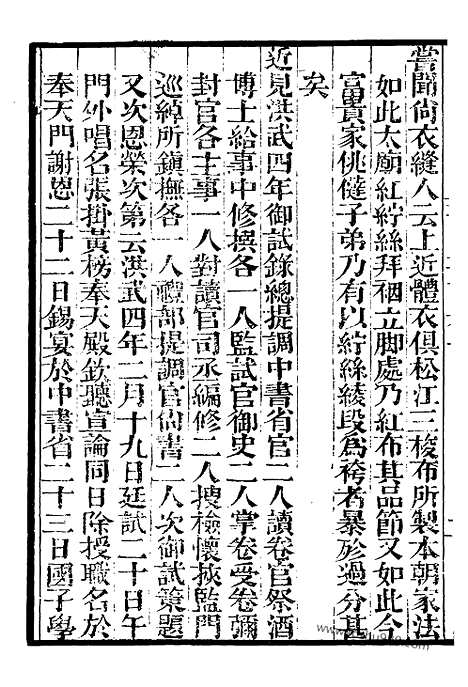 嘗聞尙衣縫人云上近體衣俱松江三梭布所製本朝家法
如此太廟紅紵絲拜裀立脚處乃紅布其品節又如此今
富貴家佻健子弟乃有以紵絲綾段爲袴者暴殄過分甚
矣
近見洪武四年御試錄總提調中書省官二人讀卷官祭酒
博士給事中修撰各一人監試官御史二人掌卷受卷彌
封官各主事一人對讀官司丞編修二人搜檢懷挾監門
巡綽所鎮撫各一人禮部提調官尙書二人次御試策題
又次恩榮次第云洪武四年二月十九日廷試二十日午
門外唱名張掛黃榜奉天殿欽聽宣論同日除授職名於
奉天門謝恩二十二日錫宴於中書省二十三日國子學